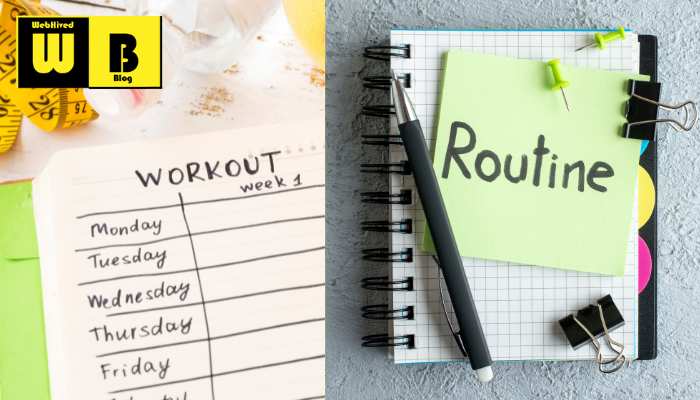 WebHived
W B
Blog
WORKOUT
week 1
Monday
Tuesday
Wednesday
Thursday
Friday
Routine